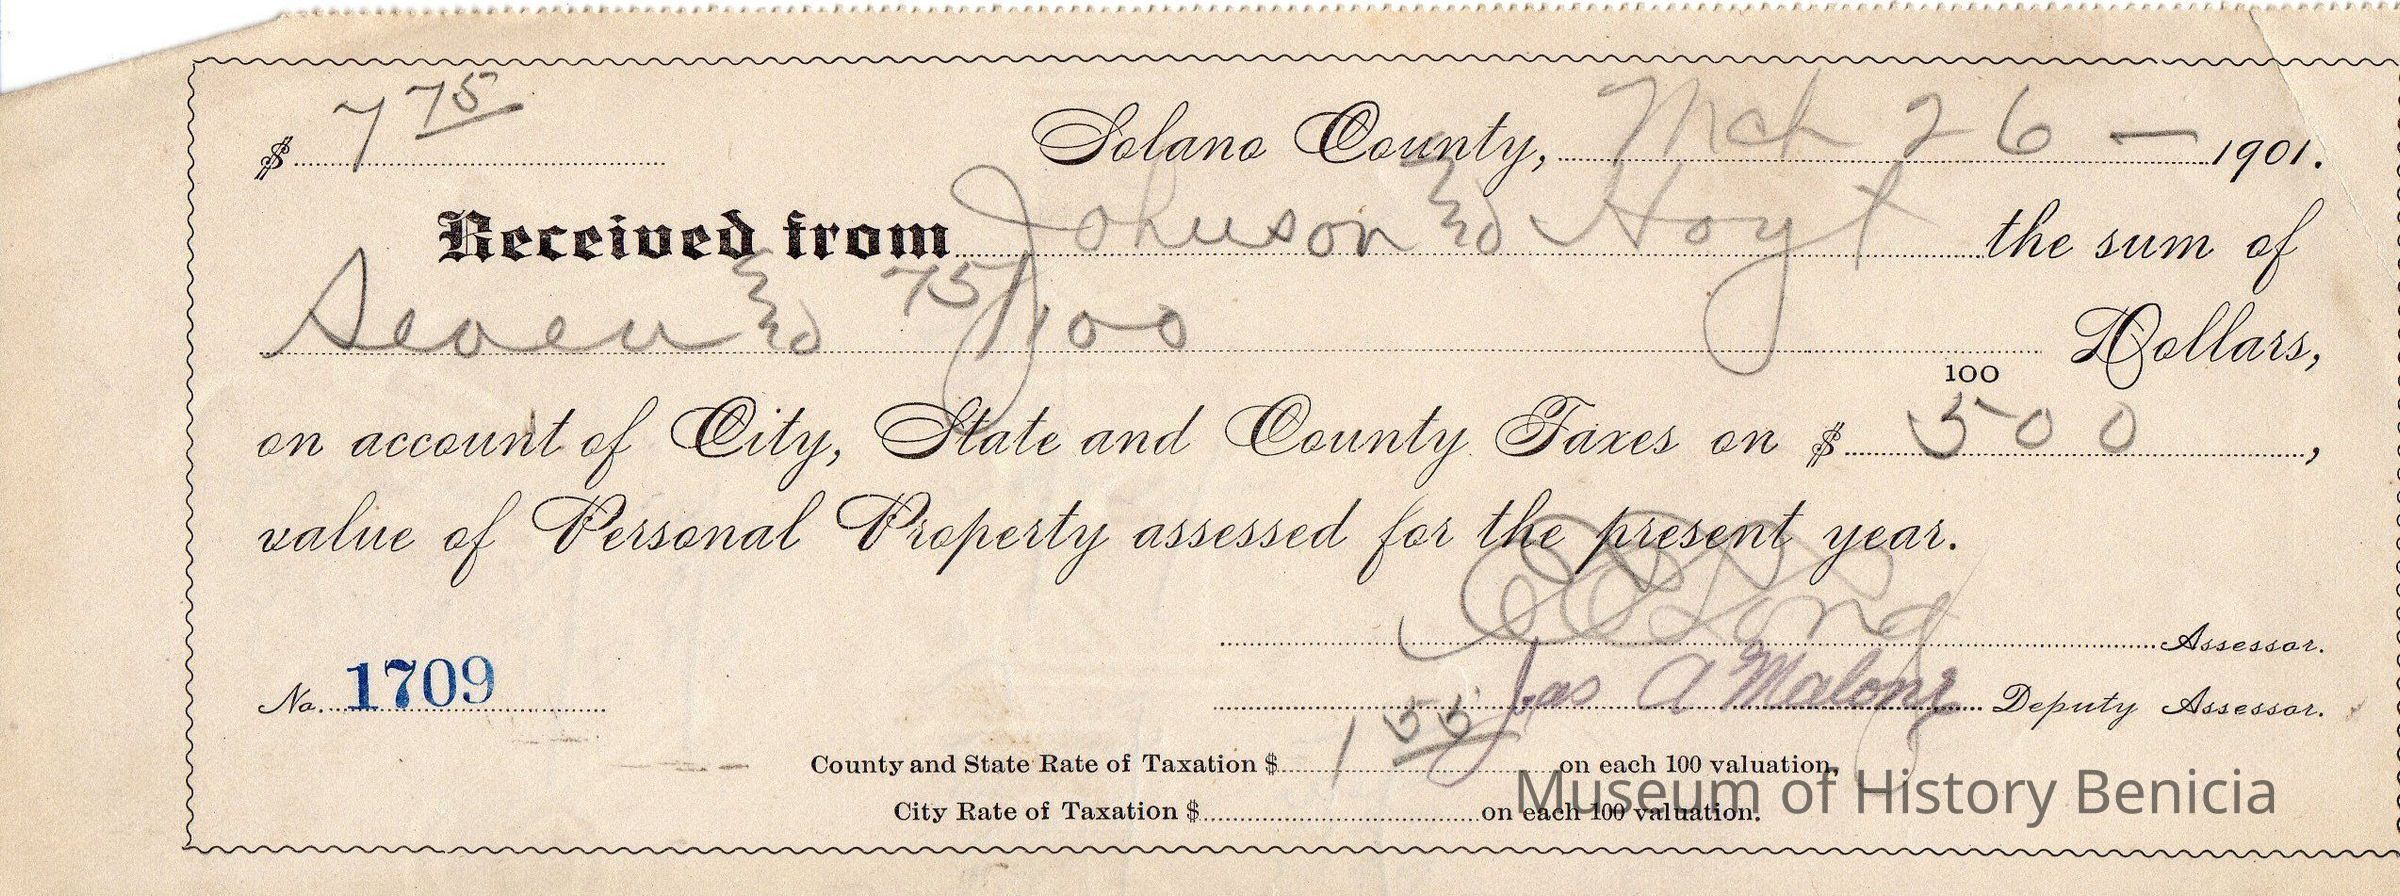 $ 7 75 Solano County, Mch 26 — 1901.
Received from Johnson & Hoyt the sum of
Seven & 75/100 Dollars,
100
on account of City, State and County Taxes on $ 500,
value of Personal Property assessed for the present year.
Long Assessor.
No. 1709 Jas A Malony Deputy Assessor.
County and State Rate of Taxation $ 1 55 on each 100 valuation,
City Rate of Taxation $ on each 100 valuation.
Museum of History Benicia